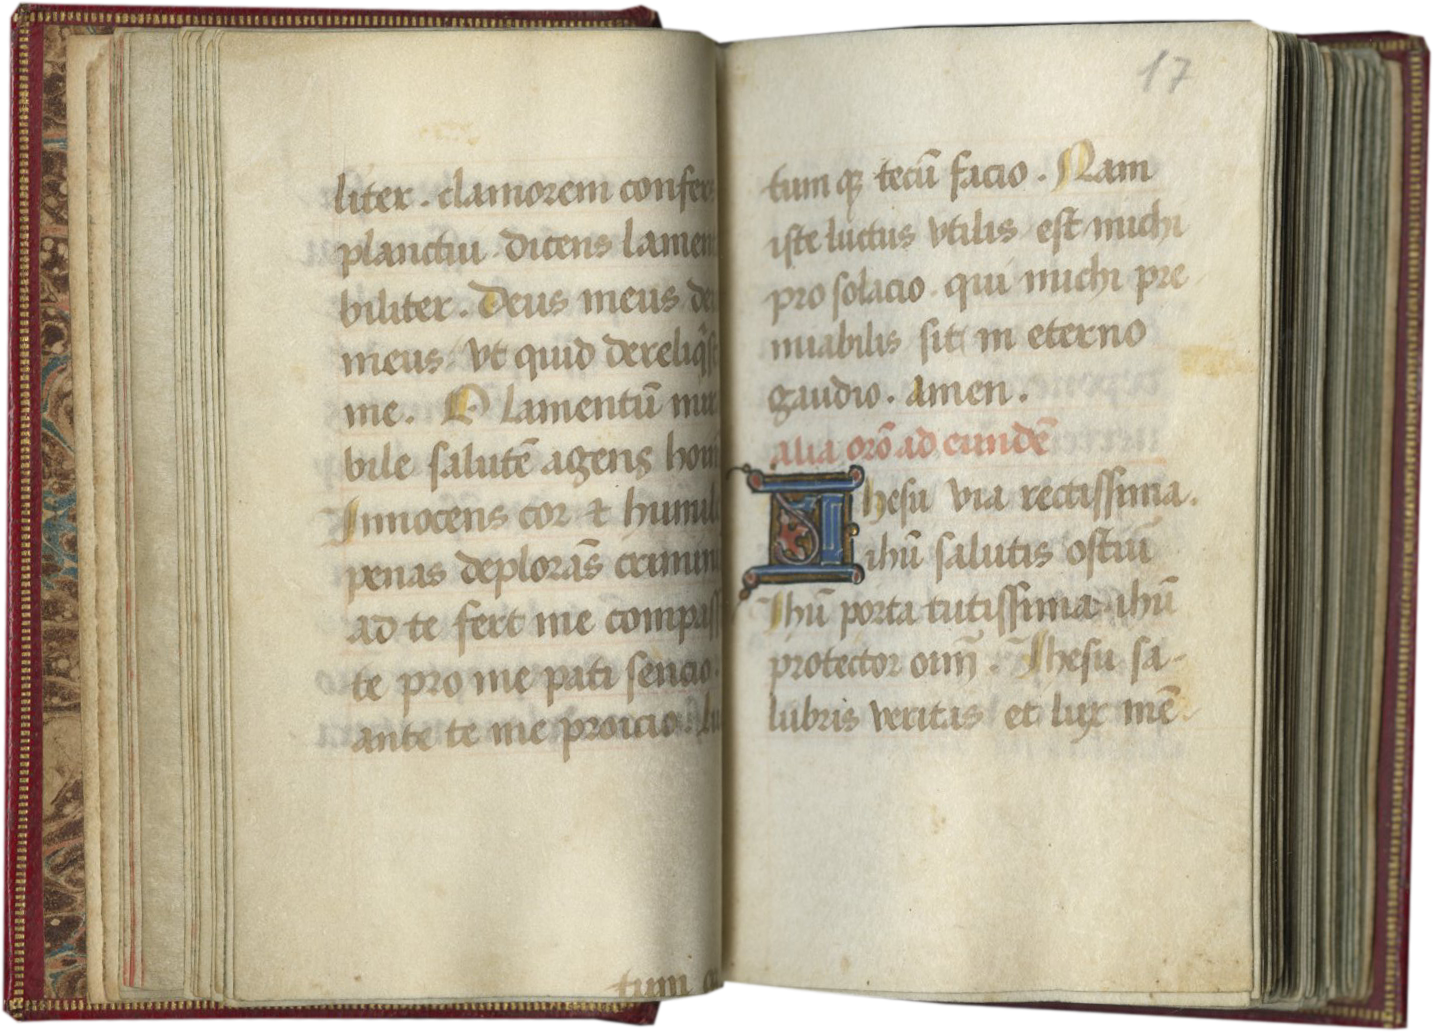 liter . clamorem confer
planctui dicens lamen
biliter . Deus meus de
meus . vt quid dereliq̃st
me . O lamentū mir
bile salutē agens hom
Innocens cor et humil
penas deplorās crimin
ad te fert me compass
te pro me pati sencio .
ante te me proicio
tum
17
tum qꝫ tecū facio . Nam
iste luctus vtilis est michi
pro solacio . qui michi pre
miabilis sit in eterno
gaudio . amen .
alia orō ad eundē
Ihesu via rectissima .
ihū salutis ostiū
Ihū porta tutissima . ihū
protector oīm . Ihesu sa-
lubris veritas et lux mē